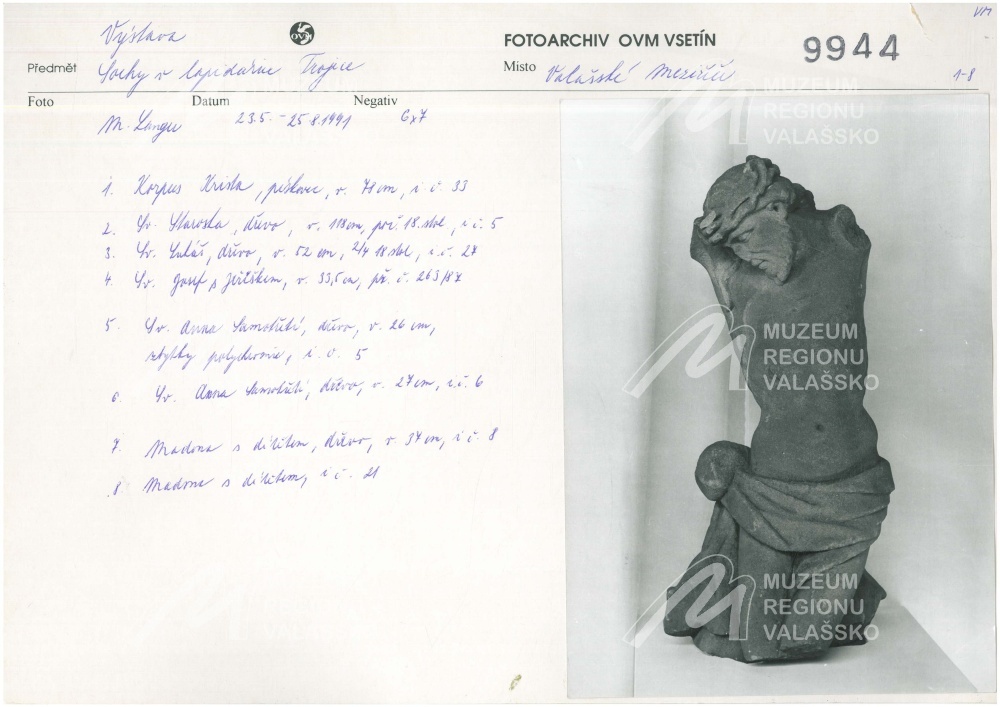 VM
Výstava
OVM
FOTOARCHIV OVM VSETÍN
9944
Předmět Sochy v lapidáriu Trojice
Místo Valašské Meziříčí
1-8
Foto Datum Negativ
M. Langer 23.5. - 25.8.1991 6x7
1. Korpus Krista, pískovec, v. 78 cm, i.č. 33
2. Sv. Starosta, dřevo, v. 118 cm, poč. 18. stol, i.č. 5
3. Sv. Lukáš, dřevo, v. 52 cm, 2/4 18 stol, i.č. 27
4. Sv. Josef s Ježíškem, v. 33,5 cm, př. č. 263/87
5. Sv. Anna Samotřetí, dřevo, v. 26 cm,
zbytky polychromie, i.č. 5
6. Sv. Anna Samotřetí, dřevo, v. 27 cm, i.č. 6
7. Madona s dítětem, dřevo, v. 37 cm, i.č. 8
8. Madona s dítětem, i.č. 21
MUZEUM
REGIONU
VALAŠSKO
MUZEUM
REGIONU
VALAŠSKO
MUZEUM
REGIONU
VALAŠSKO